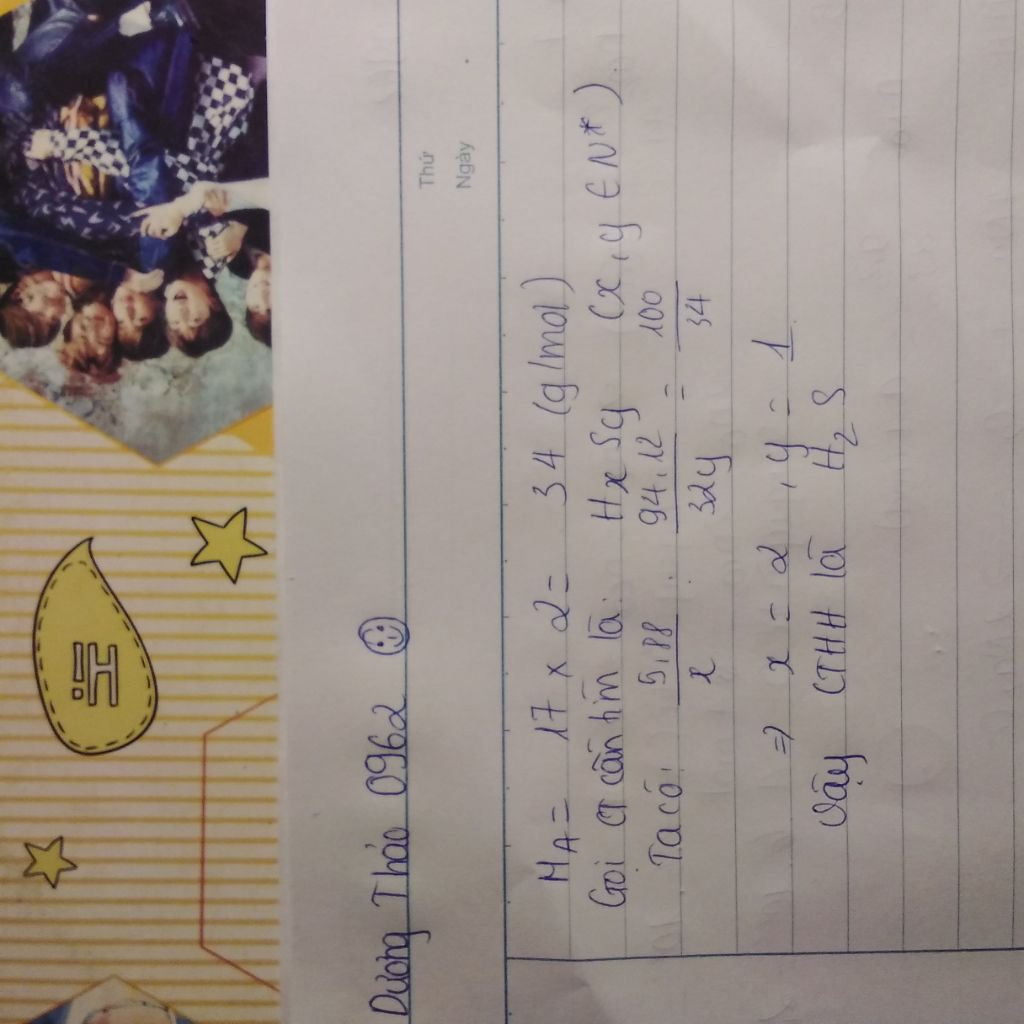 Dương Thảo 0962
Thứ
Ngày
MA = 17 x 2 = 34 (g/mol)
Gọi CT cần tìm là: HxSy (x, y ∈ N*)
Ta có: 5,88/x = 94,12/32y = 100/34
=> x = 2, y = 1
Vậy CTHH là H2S